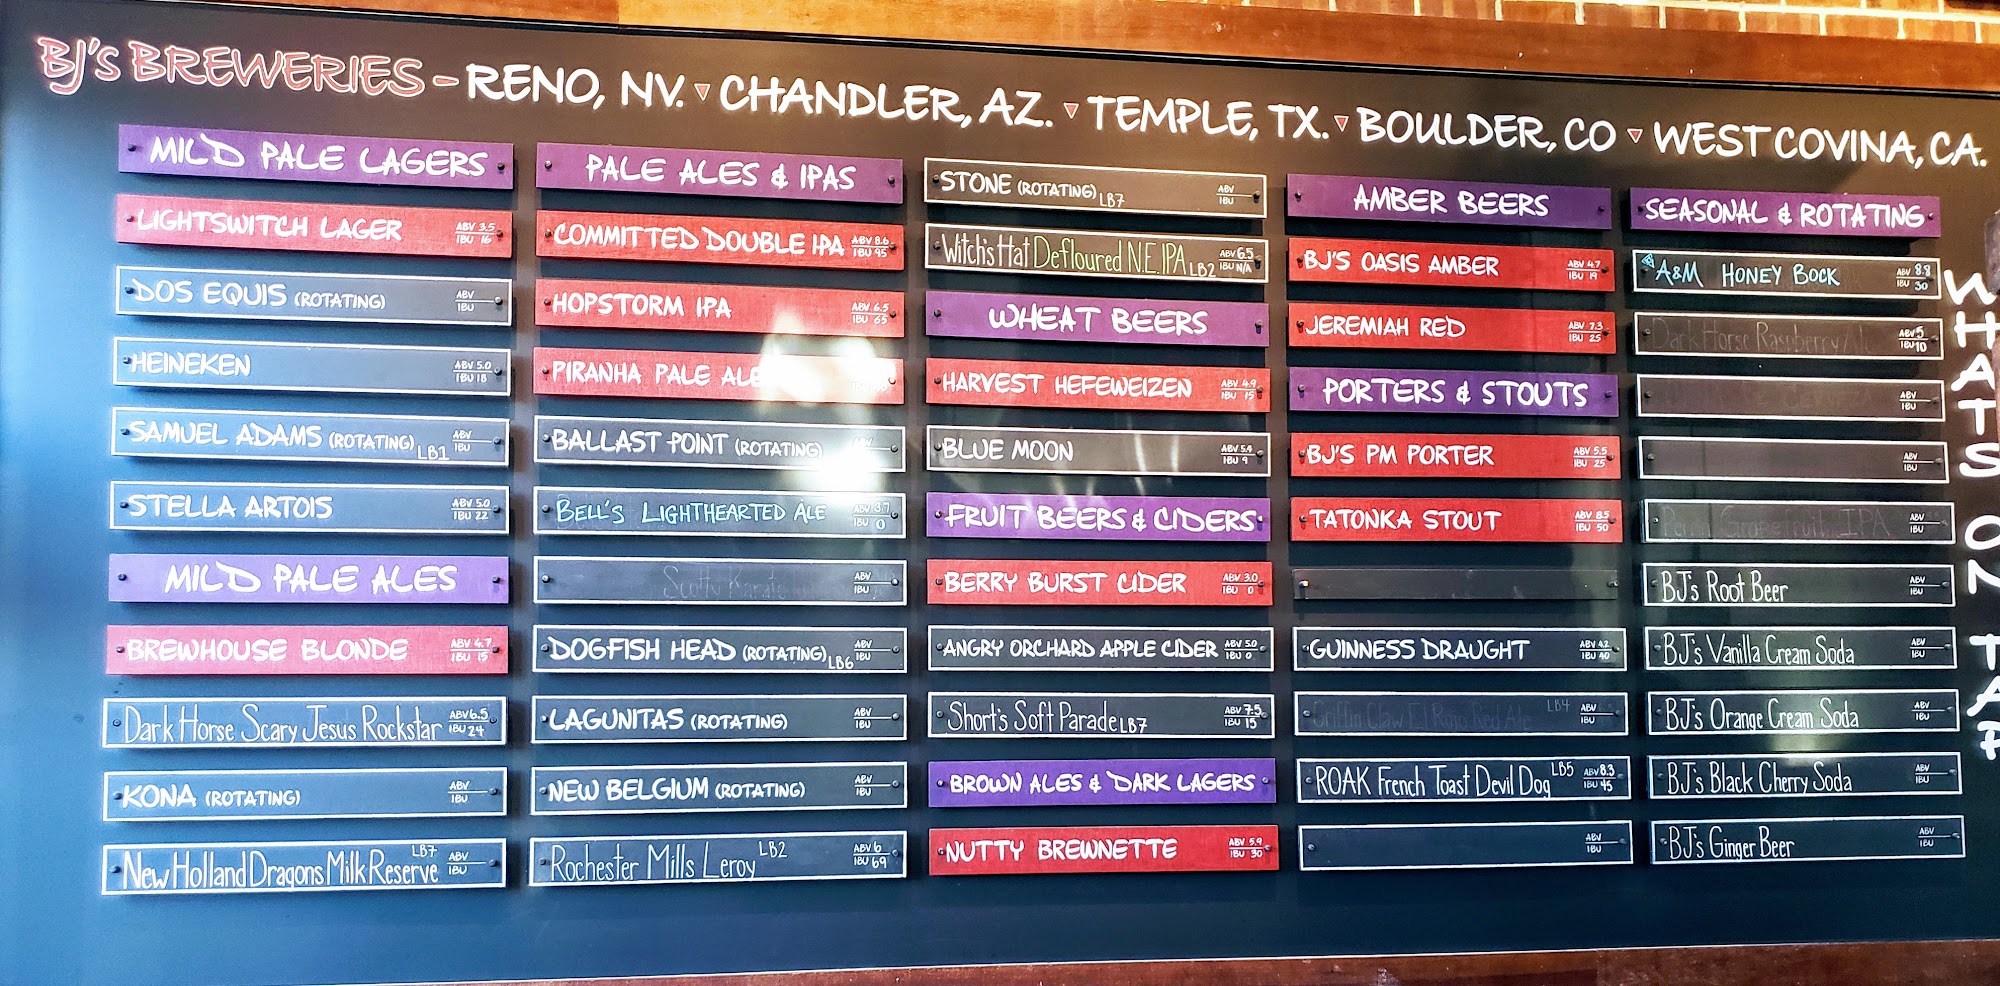 BJ'S BREWERIES - RENO, NV. CHANDLER, AZ. TEMPLE, TX. BOULDER, CO WEST COVINA, CA.
MILD PALE LAGERS
LIGHTSWITCH LAGER ABV 3.5 IBU 16
DOS EQUIS (ROTATING) ABV IBU
HEINEKEN ABV 5.0 IBU 18
SAMUEL ADAMS (ROTATING) LB1 ABV IBU
STELLA ARTOIS ABV 5.0 IBU 22
MILD PALE ALES
BREWHOUSE BLONDE ABV 4.7 IBU 15
Dark Horse Scary Jesus Rockstar ABV 6.5 IBU 24
KONA (ROTATING) ABV IBU
New Holland Dragons Milk Reserve LB7 ABV IBU
PALE ALES & IPAS
COMMITTED DOUBLE IPA ABV 8.6 IBU 95
HOPSTORM IPA ABV 6.5 IBU 65
PIRANHA PALE ALE
BALLAST POINT (ROTATING)
BELL'S LIGHTHEARTED ALE ABV 3.7 IBU 0
Scotty Karate ABV IBU
DOGFISH HEAD (ROTATING) LB6 ABV IBU
LAGUNITAS (ROTATING) ABV IBU
NEW BELGIUM (ROTATING) ABV IBU
Rochester Mills Leroy LB2 ABV 6 IBU 69
STONE (ROTATING) LB7 ABV IBU
Witch's Hat Defloured N.E. IPA LB2 ABV 6.5 IBU N/A
WHEAT BEERS
HARVEST HEFEWEIZEN ABV 4.9 IBU 15
BLUE MOON ABV 5.4 IBU 9
FRUIT BEERS & CIDERS
BERRY BURST CIDER ABV 3.0 IBU 0
ANGRY ORCHARD APPLE CIDER ABV 5.0 IBU 0
Short's Soft Parade LB7 ABV 7.5 IBU 15
BROWN ALES & DARK LAGERS
NUTTY BREWNETTE ABV 5.9 IBU 30
AMBER BEERS
BJ'S OASIS AMBER ABV 4.7 IBU 19
JEREMIAH RED ABV 7.3 IBU 25
PORTERS & STOUTS
BJ'S PM PORTER ABV 5.5 IBU 25
TATONKA STOUT ABV 8.5 IBU 50
GUINNESS DRAUGHT ABV 4.2 IBU 40
Griffin Claw El Rojo Red Ale LB4 ABV IBU
ROAK French Toast Devil Dog LB5 ABV 8.3 IBU 45
ABV IBU
SEASONAL & ROTATING
A&M HONEY BOCK ABV 8.8 IBU 30
Dark Horse Raspberry Ale ABV 5 IBU 10
ABV IBU
ABV IBU
Grapefruit IPA ABV IBU
BJ's Root Beer ABV IBU
BJ's Vanilla Cream Soda ABV IBU
BJ's Orange Cream Soda ABV IBU
BJ's Black Cherry Soda ABV IBU
BJ's Ginger Beer ABV IBU
WHATS ON TAP